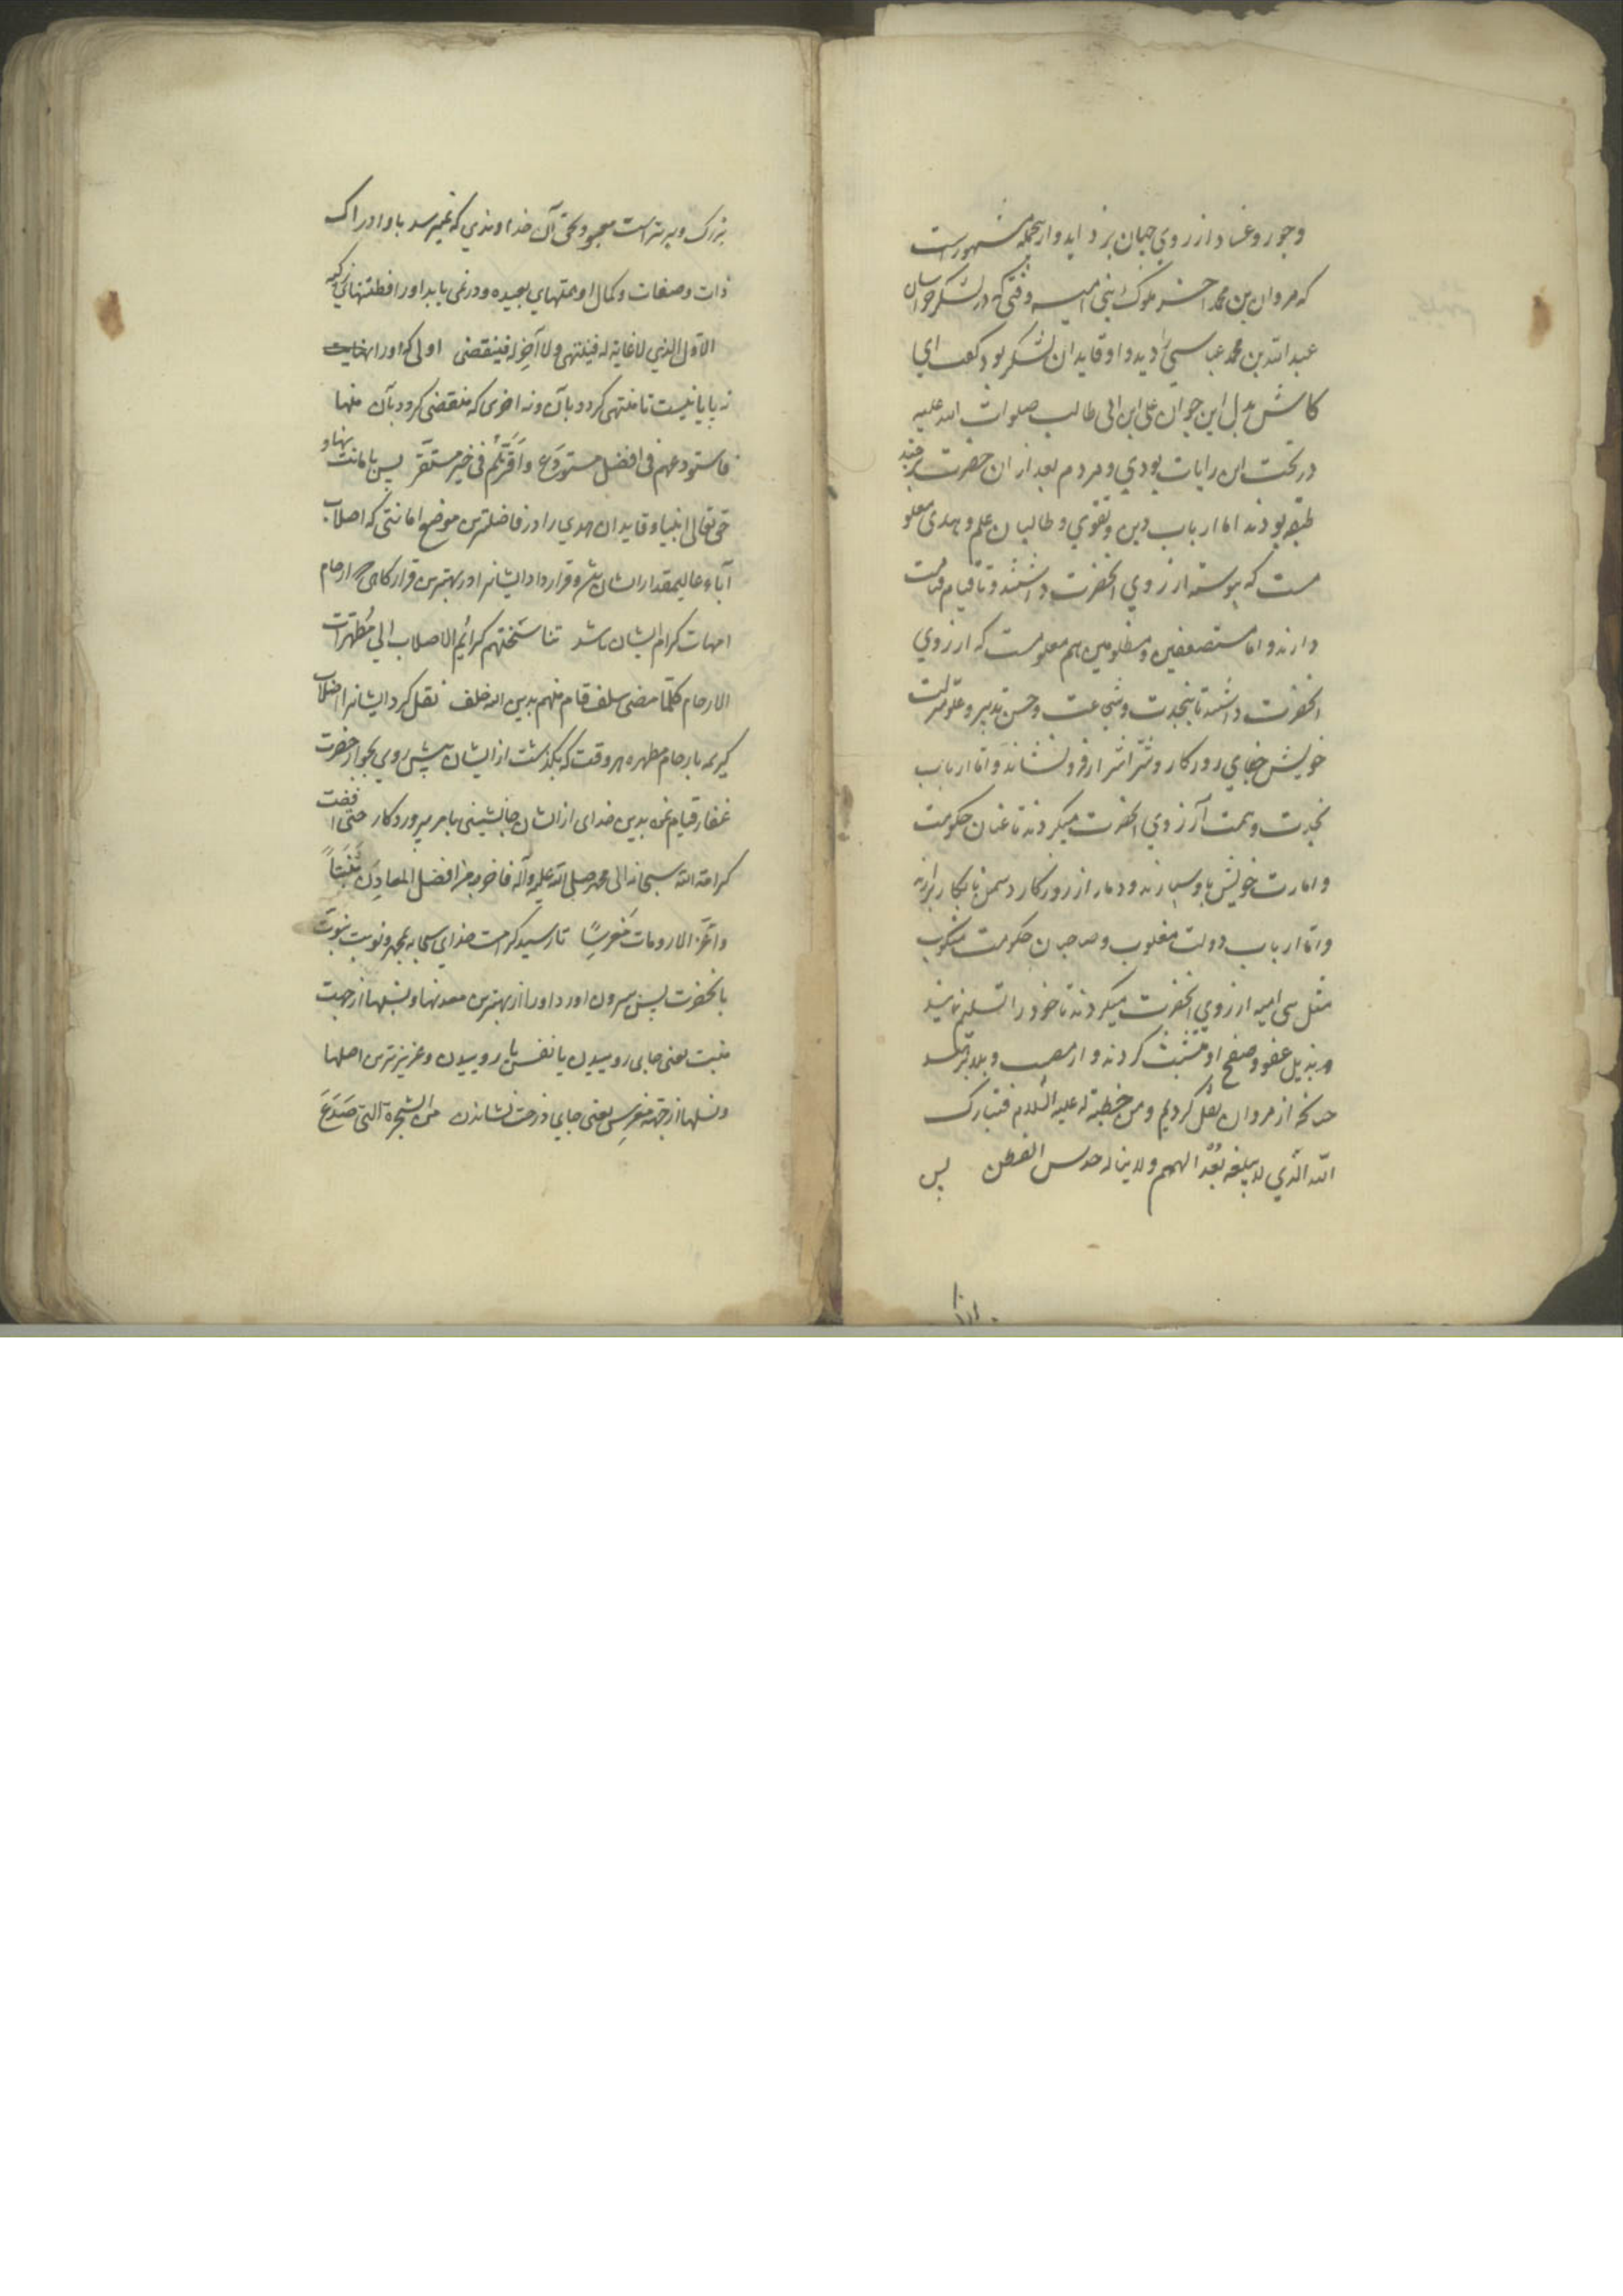 وجور و عناد از روی جهان بزداید و از جمله مشهورست
که مروان بن محمد آخر ملوک بنی امیه وقتی که در لشکر خراسان
عبدالله بن محمد عباسی را دید و او قاید آن لشکر بود گفت ای
کاش بدل این جوان علی ابن ابی طالب صلوات الله علیه
در تحت این رایات بودی و مردم بعد از آن حضرت
طبقه بودند اما ارباب دین و تقوی و طالبان علم و هدی معلو
مست که پیوسته ارزوی انحضرت داشتند و تا قیام قیامت
دارند و اما مستضعفین و مظلومین هم معلومست که ارزوی
انحضرت داشتند تا بنجدت و شجاعت و حسن تدبیر و علو منزلت
خویش جفای روزکار و شر اشرار فرو نشاند و اما ارباب
نجدت و همت آرزوی انحضرت میکردند تا عنان حکومت
و امارت خویش باو سپارند و دمار از روزکار دشمن نابکار برارند
و اما ارباب دولت مغلوب و صاحبان حکومت منکوب
مثل بنی امیه ارزوی انحضرت میکردند تا خود را تسلیم نمایند
و بذیل عفو و صفح او متشبث کردند و از
چنانچه از مروان نقل کردیم ومن خطبة له علیه السلام فتبارک
الله الذی لا یبلغه بُعْدُ الهمم ولا یناله حدس الفطن پس
بزرک و برتر است معبود بحق آن خداوندی که نمیرسد باو ادراک
ذات و صفات و کمال او همتهای بعیده و درنمی یابد او را فطنتهای زکیه
الاول الذی لا غایة له فینتهی ولا آخِر له فینقضی اولی که او را نهایت
نه پایانیست تا منتهی کردد بآن و نه اخری که منقضی کردد بآن منها
فاستودعهم فی افضل مستودَع واَقرَّهُم فی خیر مستقر پس بامانت نهاد
حق تعالی انبیا و قایدان هدی را در فاضلترین موضع امانتی که اصلاب
آباء عالیمقدار ایشان باشد و قرار داد ایشانرا در بهترین قرارکاهی که ارحام
امهات کرام ایشان باشد تناسَخَتْهم کرائِم الاصلاب الی مُطَهَّرات
الارحام کلّما مضی سلف قام منهم بدین الله خلف نقل کرد ایشانرا اصلاب
کریمه بارحام مطهره هر وقت که بگذشت از ایشان پیش روی بجوار حضرت
غفار قیام نمود بدین خدای از ایشان جانشینی بامر پروردکار حتی افضت
کرامة الله سبحانه الی محمد صلی الله علیه وآله فاخرجه من افضل المعادِن مَنْبَتاً
واعَزِّ الارومات مَغرِسًا تا رسید کرامت خدای سبحانه بمحمد و نوبت نبوت
بانحضرت پس بیرون اورد او را از بهترین معدنها و نسلها از جهت
منبت یعنی جای روییدن یا نفس روییدن و عزیزترین اصلها
و نسلها از جهة مغرِس یعنی جای درخت نشاندن من الشجرة التی صَدَعَ